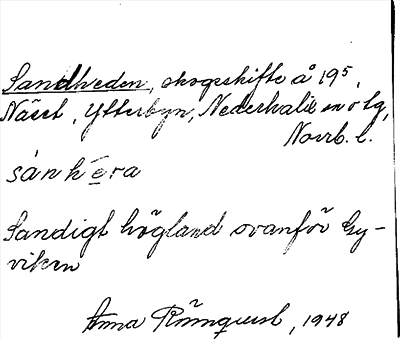 Sandheden, skogsskifte å 19⁵,
Näset, Ytterbyn, Nederkalix sn o tg,
Norrb. l.
sánhēra
Sandigt högland ovanför Gy-
viken
Anna Römquist, 1948